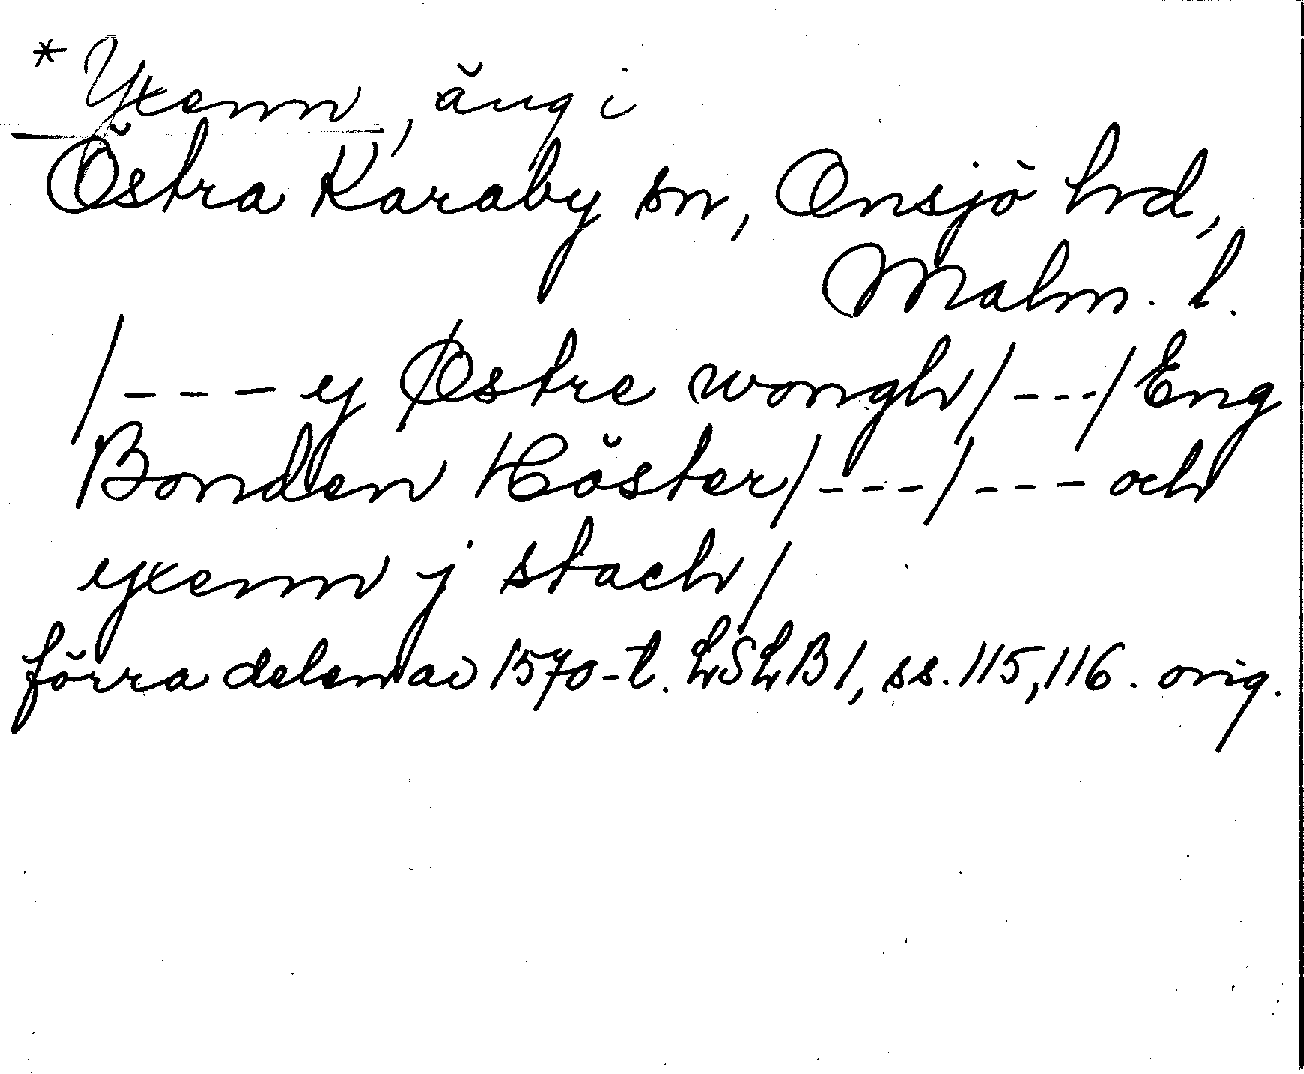 * Yxenn, äng i
Östra Karaby sn, Onsjö hd,
Malm. l.
/---- ej Østre wongh/---/Eng
Bonden Höster/---/--- och
yxenn j stach/
förra delen av 1570-t. LSLB 1, ss. 115, 116. orig.